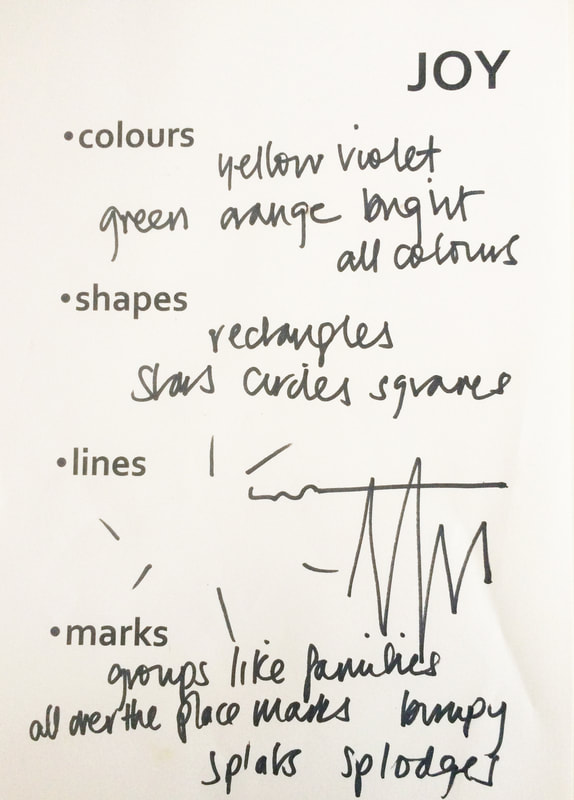 JOY
•colours
yellow violet
green orange bright
all colours
•shapes
rectangles
Stars Circles squares
•lines
•marks
groups like families
all over the place marks bumpy
splats splodges